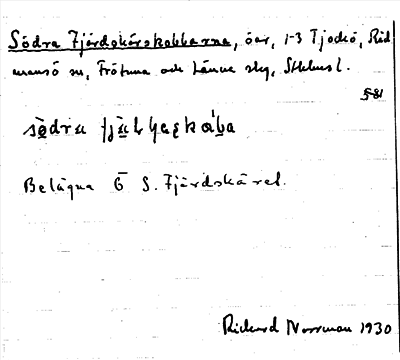 Södra Fjärdskärskobbarna, öar, 1-3 Tjockö, Räd
mansö sn, Frötuna och Länna skg, Sthlms l.
§ 81
södra
Belägna Ö S. Fjärdskäret.
Rickard Norrman 1930